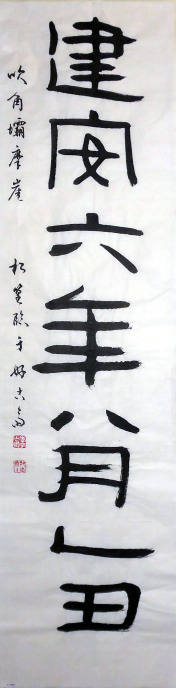 建安六年八月乙丑
吹角壩摩崖
臨于好古齋